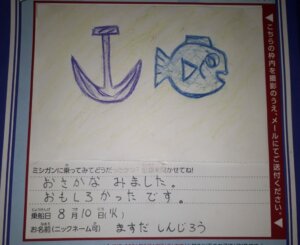 ミシガンに乗ってみてどうだったかな?ご感想聞かせてね!
おさかな みました。
おもしろかった です。
乗船日 8月10日(火)
お名前(ニックネーム可) ますだ しんじろう
こちらの枠内を撮影のうえ、メールにてご送付ください。